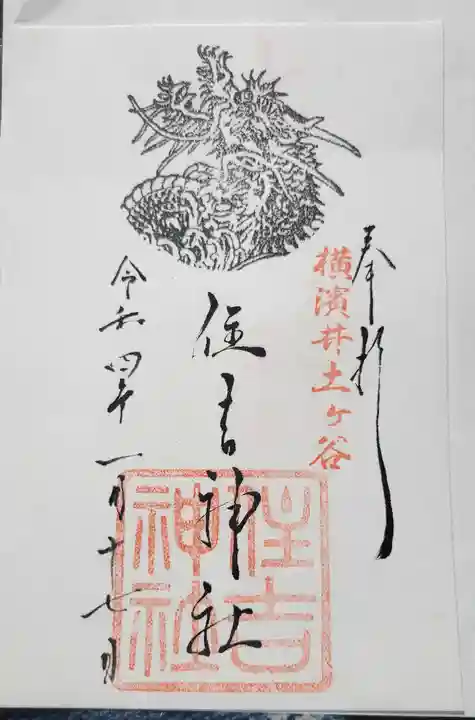 奉拝
横濱井土ヶ谷
住吉神社
住吉神社
令和四年一月十七日